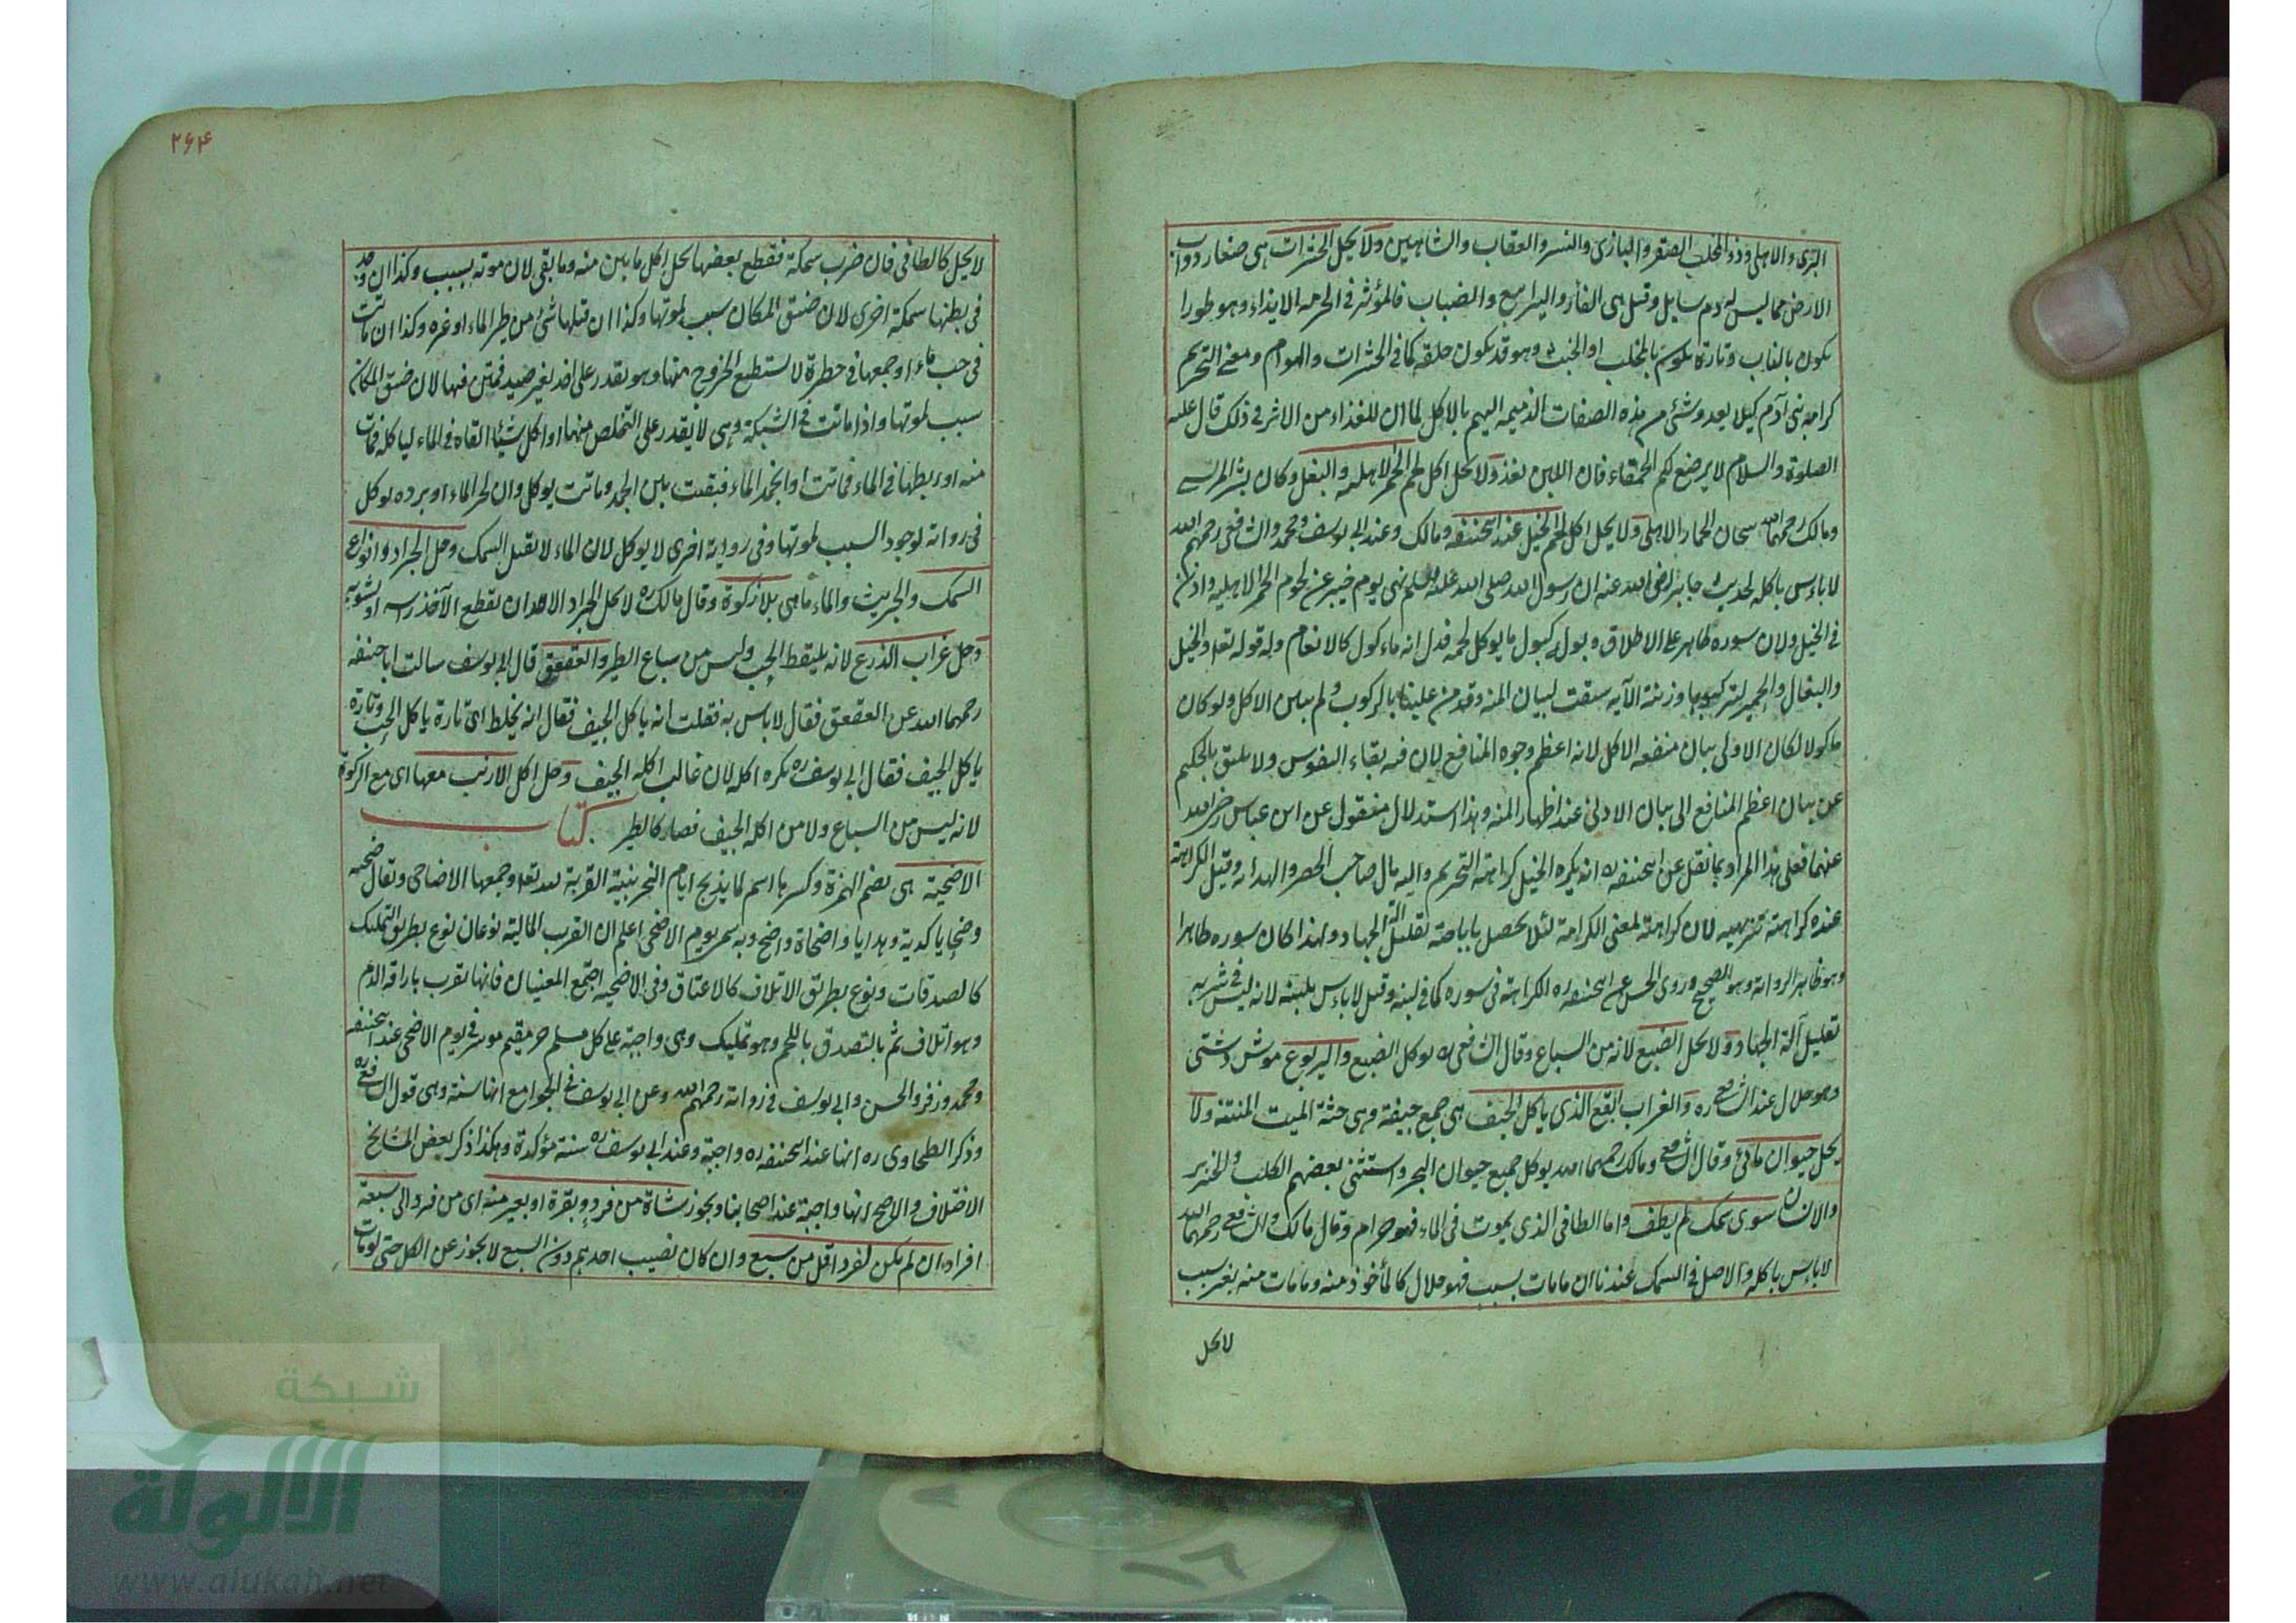 البرى والاهلى وذو المخلب الصقر والبازى والنسر والعقاب والشاهين ولا يحل الحشرات هى صغار دواب
الارض مما ليس له دم سايل وقيل هى الفار واليرابيع والضباب فالمؤثر فى الحرمه الايذاء وهو طورا
يكون بالناب وتارة يكون بالمخلب او الخبث وهو قد يكون خلقه كما فى الحشرات والهوام ومعنى التحريم
كرامه بنى آدم كيلا يعدو شئ من هذه الصفات الذميمه اليهم بالاكل لما ان للغذاء من الاثر فى ذلك قال عليه
الصلوة والسلام لا يرضع لكم الحمقاء فان اللبن يغذ ولا يحل اكل لحم الحمر الاهليه والبغل وكان بشر المريسى
ومالك رحمهما الله يبيحان الحمار الاهلى ولا يحل اكل لحم الخيل عند ابيحنيفه ومالك وعند ابى يوسف ومحمد والشافعى رحمهم الله
لا باس باكله لحديث جابر رضى الله عنه ان رسول الله صلى الله عليه وسلم نهى يوم خيبر عن لحوم الحمر الاهليه واذن
فى الخيل ولان سوره طاهر على الاطلاق وبوله كبول ما يوكل لحمه فدل انه ماءكول كالانعام وله قوله تعا والخيل
والبغال والحمير لتركبوها وزينة الآيه سيقت لبيان المنه وقد من علينا بالركوب ولم يبين الاكل ولو كان
ماكولا لكان الاولى بيان منفعه الاكل لانه اعظم وجوه المنافع لان فيه بقاء النفوس ولا يليق بالحكيم
عن بيان اعظم المنافع الى بيان الادنى عند اظهار المنه وهذا استدلال منقول عن ابن عباس رضى الله
عنهما فعلى هذا المراد بما نقل عن ابيحنيفه ره انه يكره الخيل كراهة التحريم واليه مال صاحب الحصر والهدايه وقيل الكراهة
عنده كراهته تنزيهيه لان كراهته لمعنى الكرامة لئلا يحصل باباحته تقليل آلة الجهاد ولهذا كان سوره طاهرا
وهو ظاهر الروايه وهو الصحيح وروى الحسن عن ابيحنيفه ره الكراهة فى سوره كما فى لبنه وقيل لاباءس بلبنه لانه ليس فى شربه
تقليل آلة الجهاد ولا يحل الضبع لانه من السباع وقال الشافعى ره يوكل الضبع واليربوع موش دشتى
وهو حلال عند الشافعى ره والغراب البقع الذى ياكل الجيف هى جمع جيفة وهى جثة الميت المنتنه ولا
يحل حيوان مائى وقال الشافعى ومالك رحمهما الله يوكل جميع حيوان البحر واستثنى بعضهم الكلب والخنزير
والانسان سوى سمك لم يطف واما الطافى الذى يموت فى الماء فهو حرام وقال مالك والشافعى رحمهما الله
لاباءس باكله والاصل فى السمك عندنا ان مامات بسبب فهو حلال كالمأخوذ منه ومامات منه بغير سبب
لا يحل
٢٦٤
لا يحل كالطافى فان ضرب سمكة فقطع بعضها يحل اكل ما بين منه وما بقى لان موته بسبب وكذا ان وجد
فى بطنها سمكة اخرى لان ضيق المكان سبب لموتها وكذا ان قتلها شئ من طير الماء او غيره وكذا ان ماتت
فى حب ماء او جمعها فى حظيرة لا يستطيع الخروج منها وهو يقدر على اخذ بغير صيد فمتن فيها لان ضيق المكان
سبب لموتها واذا ماتت فى الشبكة وهى لا يقدر على التخلص منها او اكل شيئا القاه فى الماء لياكله فمات
منه او ربطها فى الماء فماتت او انجمد الماء فبقيت بين الجمد وماتت يوكل وان لحر الماء او برده يوكل
فى روايه لوجود السبب لموتها وفى رواية اخرى لا يوكل لان الماء لا يقتل السمك وحل الجراد وانواع
السمك والجريث والماء ماهى بلا زكوة وقال مالك ره لا يحل الجراد الا ان يقطع الآخذ رأسه او يشويه
وحل غراب الذرع لانه يليقط الحب وليس من سباع الطير والعقعق قال ابى يوسف سالت اباحنيفه
رحمهما الله عن العقعق فقال لا باس به فقلت انه ياكل الجيف فقال انه يخلط اى تارة ياكل الحب وتارة
ياكل الجيف فقال ابى يوسف ره يكره اكله لان غالب اكله الجيف وحل اكل الارنب معها اى مع الزكوة
لانه ليس من السباع ولا من اكله الجيف فصار كالطير كتاب
الاضحية هى بضم الهمزة وكسرها اسم لما يذبح ايام النحر بنية القربة لله تعا وجمعها الاضاحى ويقال ضحيه
وضحايا كهدية وهدايا واضحاة واضح وبه سمى يوم الاضحى اعلم ان القرب المالية نوعان نوع بطريق التمليك
كالصدقات ونوع بطريق الاتلاف كالاعتاق وفى الاضحيه اجتمع المعنيان فانها تقرب باراقه الدم
وهو اتلاف ثم بالتصدق باللحم وهو تمليك وهى واجبة على كل مسلم حر مقيم موسر فى يوم الاضحى عند ابيحنيفه
ومحمد وزفر والحسن وابى يوسف فى روايه رحمهم الله وعن ابى يوسف فى الجوامع انها سنة وهى قول الشافعى ره
وذكر الطحاوى ره انها عند ابيحنيفه ره واجبة وعند ابى يوسف ره سنة مؤكدة وهكذا ذكر بعض المشايخ
الاختلاف والاصح انها واجبة عند اصحابنا ويجوز شاة من فرد وبقرة او بعير منه اى من فرد الى سبعة
افراد ان لم يكن لفرد اقل من سبع وان كان نصيب احدهم دون السبع لا يجوز عن الكل حتى لو مات
شبكة
الألوكة
www.alukah.net